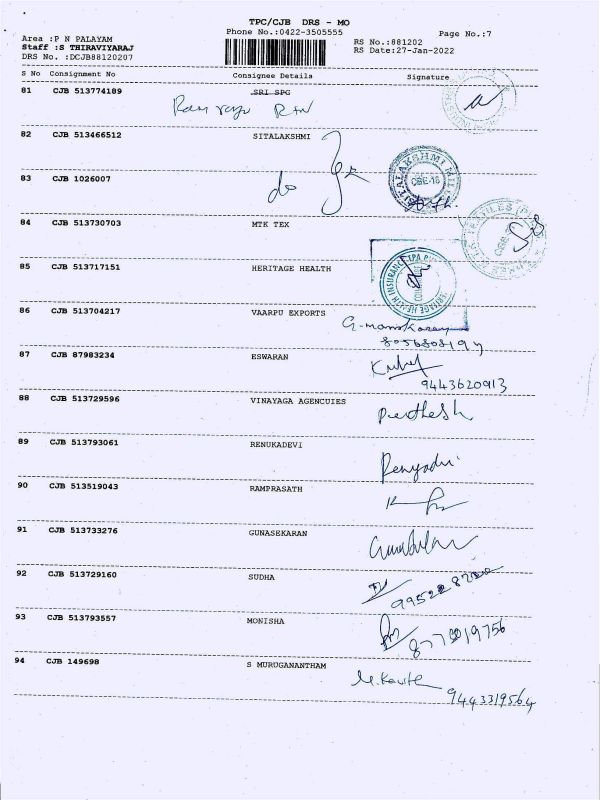 TPC/CJB DRS - MO
Phone No.:0422-3505555
Page No.:7
Area :P N PALAYAM
Staff :S THIRAVIYARAJ
DRS No. :DCJB88120207
RS No.:881202
RS Date:27-Jan-2022
S No Consignment No Consignee Details Signature
81 CJB 513774189 SRI SPG
82 CJB 513466512 SITALAKSHMI
83 CJB 1026007 do
84 CJB 513730703 MTK TEX
85 CJB 513717151 HERITAGE HEALTH
86 CJB 513704217 VAARPU EXPORTS
87 CJB 87983234 ESWARAN
9443620913
88 CJB 513729596 VINAYAGA AGENCUIES
89 CJB 513793061 RENUKADEVI
90 CJB 513519043 RAMPRASATH
91 CJB 513733276 GUNASEKARAN
92 CJB 513729160 SUDHA
93 CJB 513793557 MONISHA
94 CJB 149698 S MURUGANANTHAM
9443319564